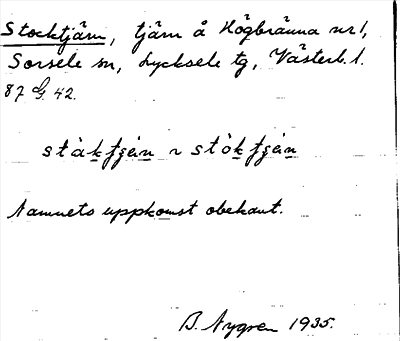 Stocktjärn, tjärn å Högbränna nr 1,
Sorsele sn, Lycksele tg, Västerb. l.
87 G. 42.
Namnets uppkomst obekant.
B. Nygren 1935.